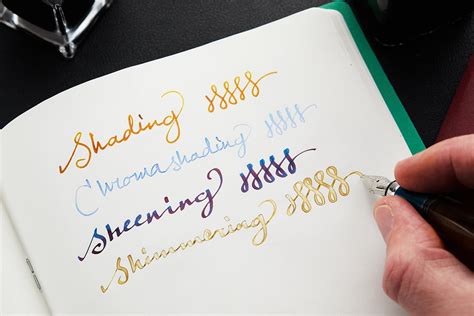 Shading
Chromashading
Sheening
Shimmering